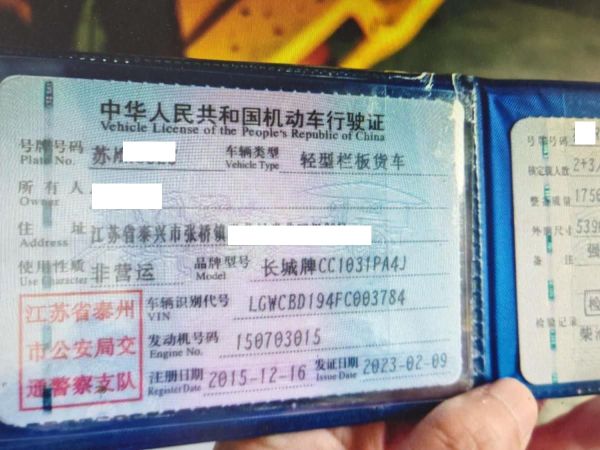 中华人民共和国机动车行驶证
Vehicle License of the People's Republic of China
号牌号码 苏 车辆类型 轻型栏板货车
Plate No. Vehicle Type
所有人
Owner
住址 江苏省泰兴市张桥镇
Address
使用性质 非营运 品牌型号 长城牌CC1031PA4J
Use Character Model
车辆识别代号 LGWCBD194FC003784
VIN
发动机号码 150703015
Engine No.
注册日期 2015-12-16 发证日期 2023-02-09
Register Date Issue Date
江苏省泰州
市公安局交
通警察支队
号牌号码
核定载人数 2+3人
整备质量 1756
外廓尺寸 539
备注 强
检验记录
柴油